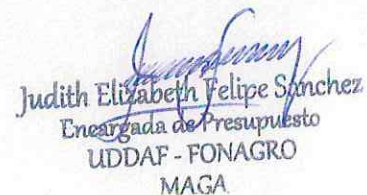 Judith Elizabeth Felipe Sánchez
Encargada de Presupuesto
UDDAF - FONAGRO
MAGA